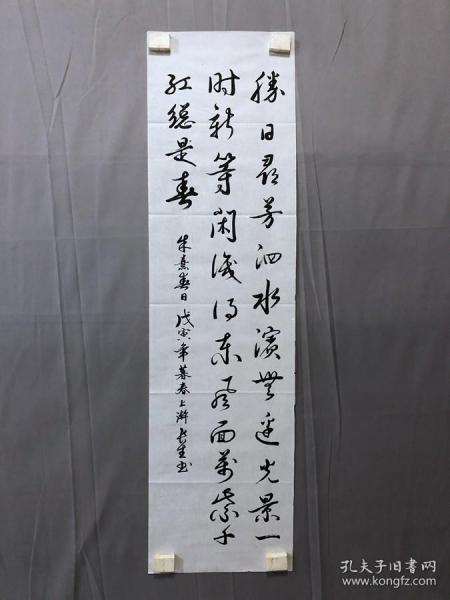 勝日尋芳泗水濱無邊光景一
时新等闲識得東風面萬紫千
红總是春
朱熹春日 戊寅年暮春上澣长生书
孔夫子旧书网
www.kongfz.com